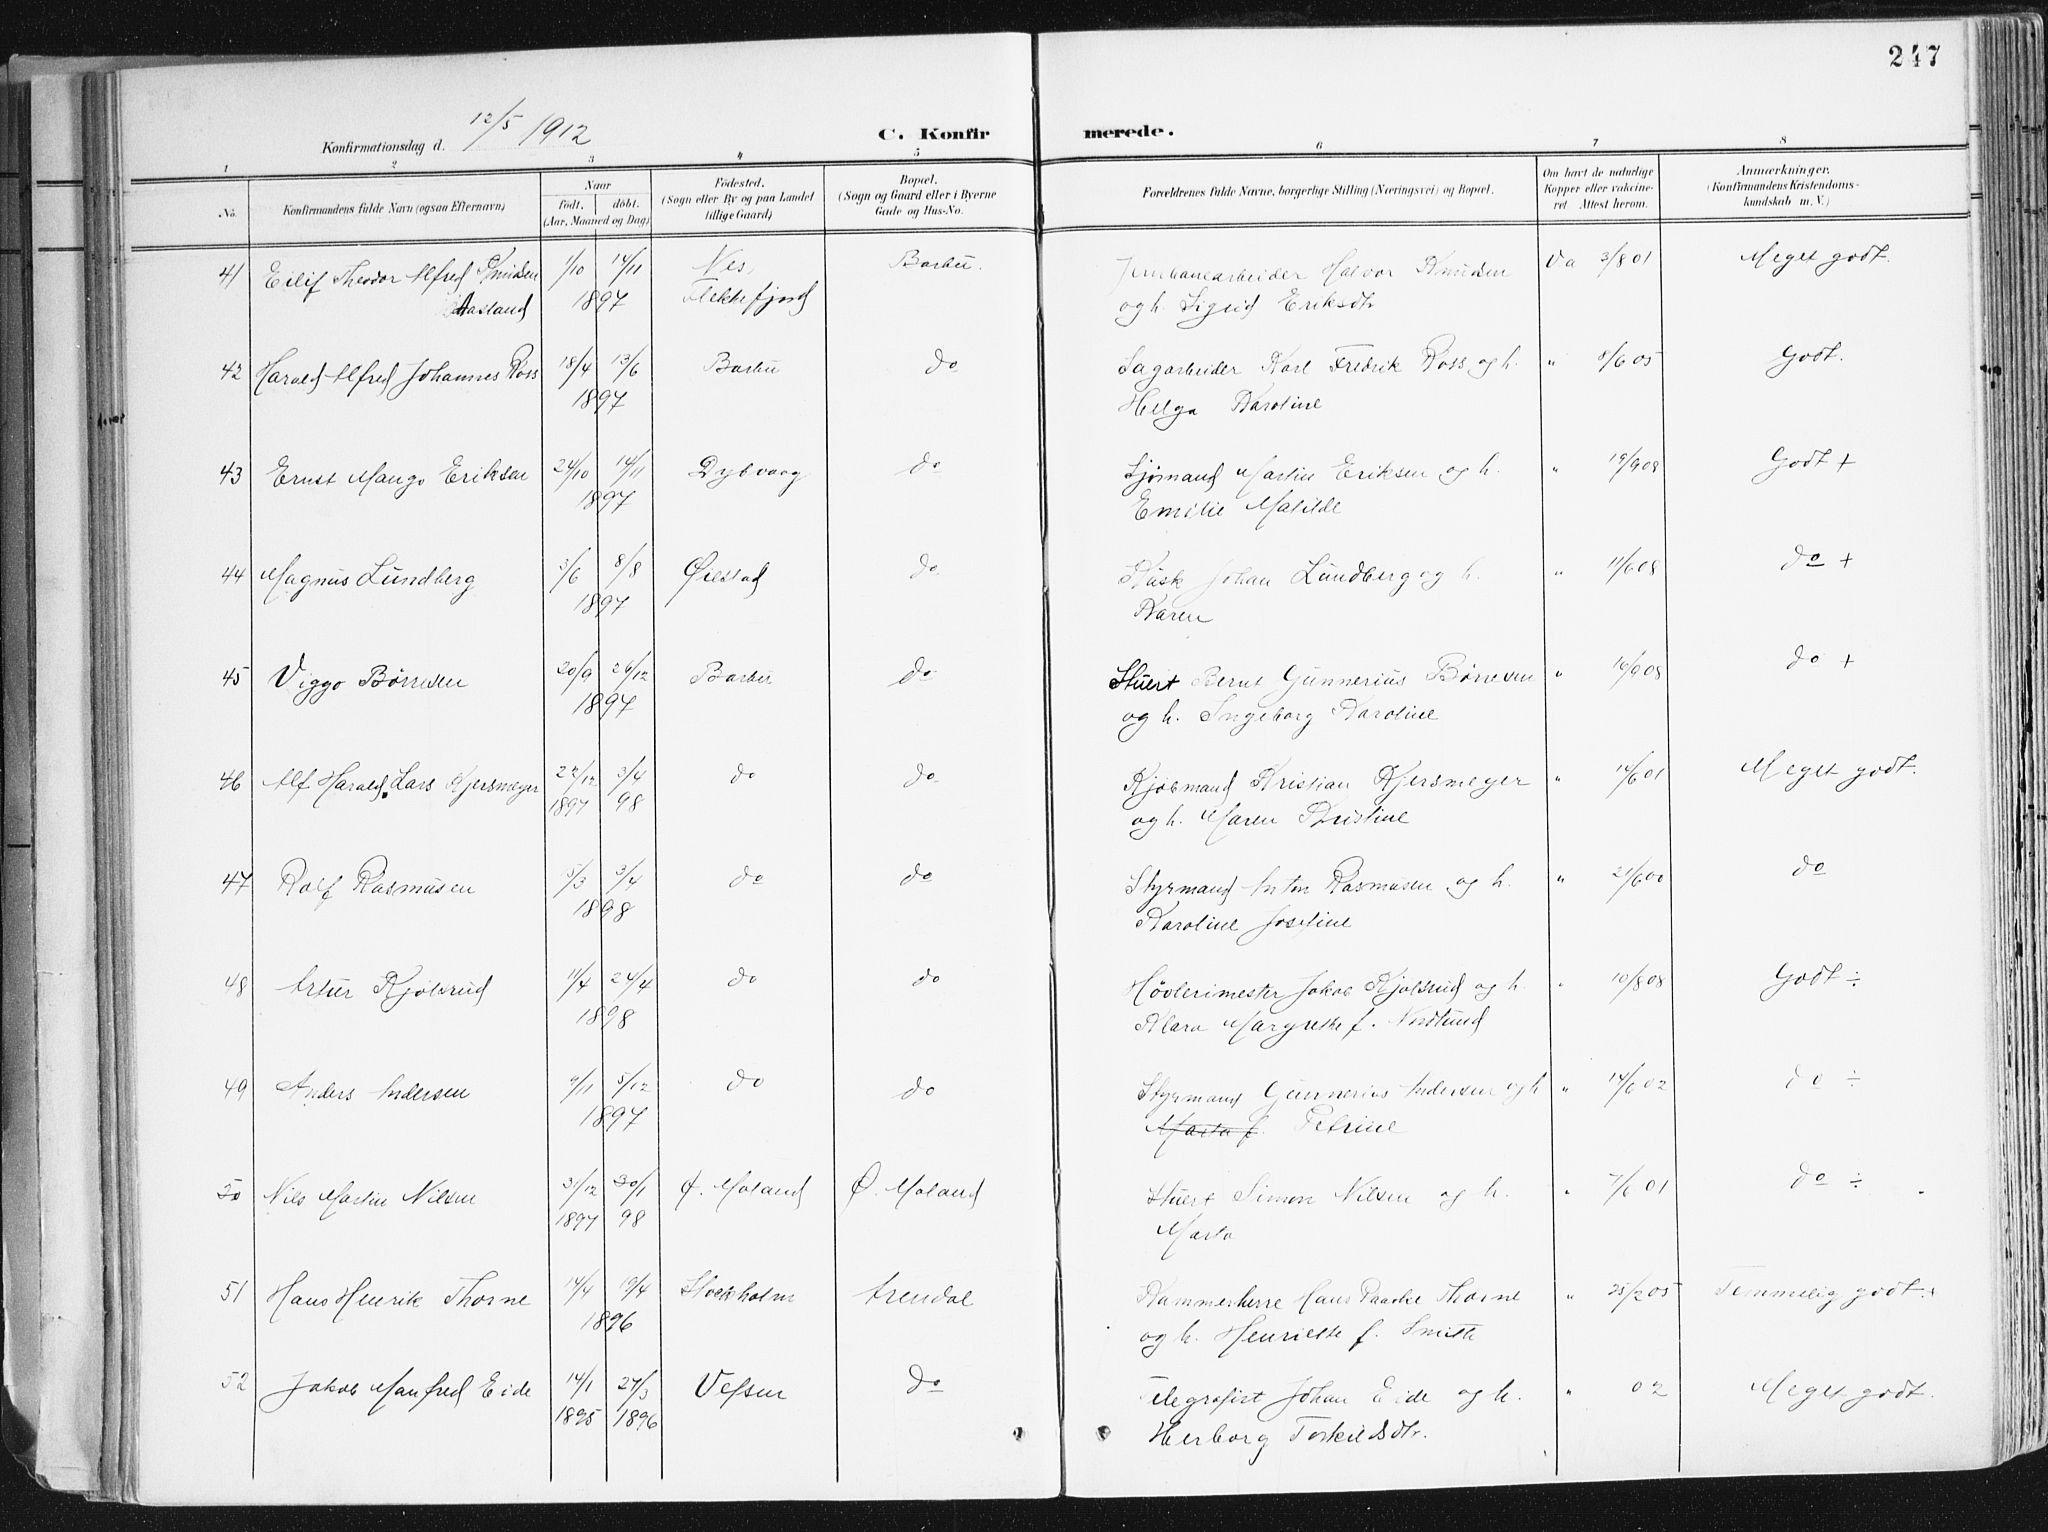 247
Konfirmationsdag d. 12/5 1912
C. Konfirmerede.
1 2 3 4 5 6 7 8
No. Konfirmandens fulde Navn (ogsaa Efternavn) Naar født. døbt. (Aar, Maaned og Dag) Fødested. (Sogn eller By og paa Landet tillige Gaard) Bopæl. (Sogn og Gaard eller i Byerne Gade og Hus-No. Forældrenes fulde Navne, borgerlige Stilling (Næringsvei) og Bopæl. Om havt de naturlige Kopper eller vaccineret Attest herom. Anmærkninger. (Konfirmandens Kristendomskundskab m. V.)
41 Eilif Theodor Alfred Knudsen 1/10 14/11 Nes, Barbu. Jernbanearbeider Halvor Knudsen Va 3/8 01 Meget godt.
Aasland 1897 Flekkefjord og h. Sigrid Eriksdtr
42 Harald Alfred Johannes Ross 18/4 13/6 Barbu do Sagarbeider Karl Fredrik Ross og h. " 8/6 05 Godt.
1897 Helga Karoline
43 Ernst Mango Eriksen 24/10 14/11 Dybvaag do Sjømand Martin Eriksen og h. " 19/9 08 Godt +
1897 Emilie Matilde
44 Magnus Lundberg 3/6 8/8 Øiestad do Kusk Johan Lundberg og h. " 11/6 08 do +
1897 Karen
45 Viggo Børresen 20/9 26/12 Barbu do Stuert Bernt Gunnerius Børresen " 16/9 08 do +
1897 og h. Ingeborg Karoline
46 Alf Harald Lars Kjersmeyer 22/12 3/4 do do Kjøbmand Kristian Kjersmeyer " 14/6 01 Meget godt.
1897 98 og h. Maren Kristine
47 Rolf Rasmusen 5/3 3/4 do do Styrmand Anton Rasmusen og h. " 21/6 00 do
1898 Karoline Josefine
48 Artur Kjølsrud 11/4 24/4 do do Høvlerimester Jakob Kjølsrud og h. " 10/8 08 Godt ÷
1898 Klara Margrethe f. Nordlund
49 Anders Andersen 9/11 5/12 do do Styrmand Gunnerius Andersen og h " 14/6 02 do ÷
1897 Marta f. Petrine
50 Nils Martin Nilsen 31/12 30/1 Ø. Moland Ø. Moland Stuert Simon Nilsen og h. " 7/6 01 do ÷
1897 98 Marta
51 Hans Henrik Thorne 14/4 19/4 Stockholm Arendal Kammerherre Hans Paaske Thorne " 25/2 05 Temmelig godt. +
1896 og h. Henriette f. Smith
52 Jakob Manfred Eide 14/1 27/3 Vefsen do Telegrafist Johan Eide og h. " 02 Meget godt.
1895 1896 Herborg Torkildsdtr.